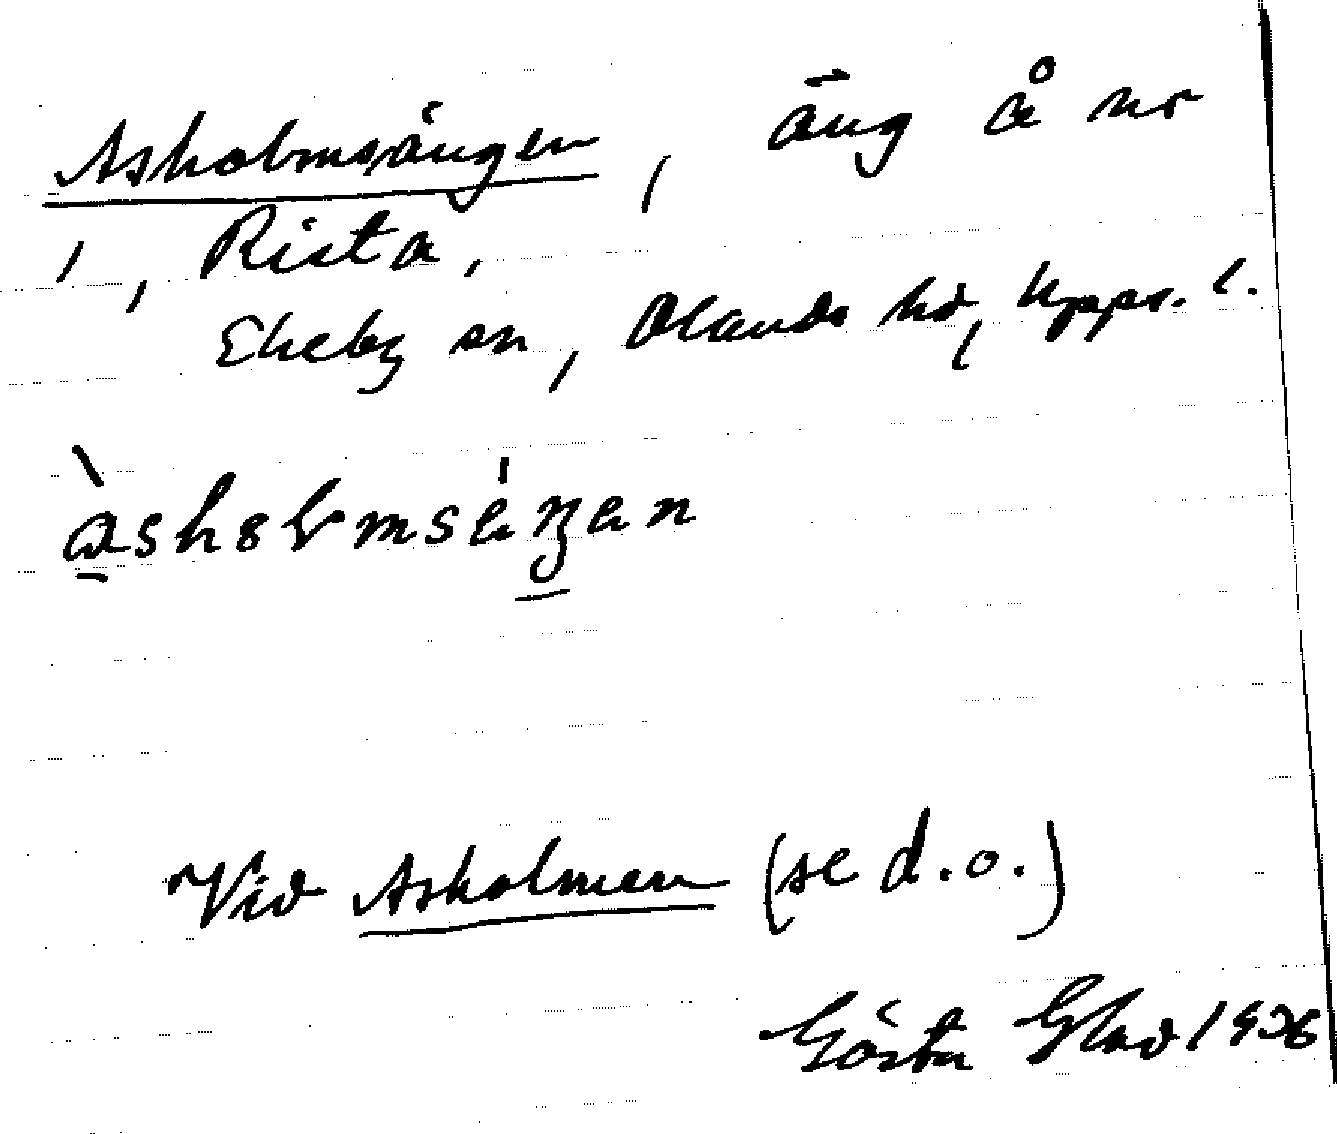 Asholmsängen, äng å nr
1, Rista,
Ekeby sn, Olands hd, Upps. l.
Vid Asholmen (se d.o.)
Gösta Glad 1936